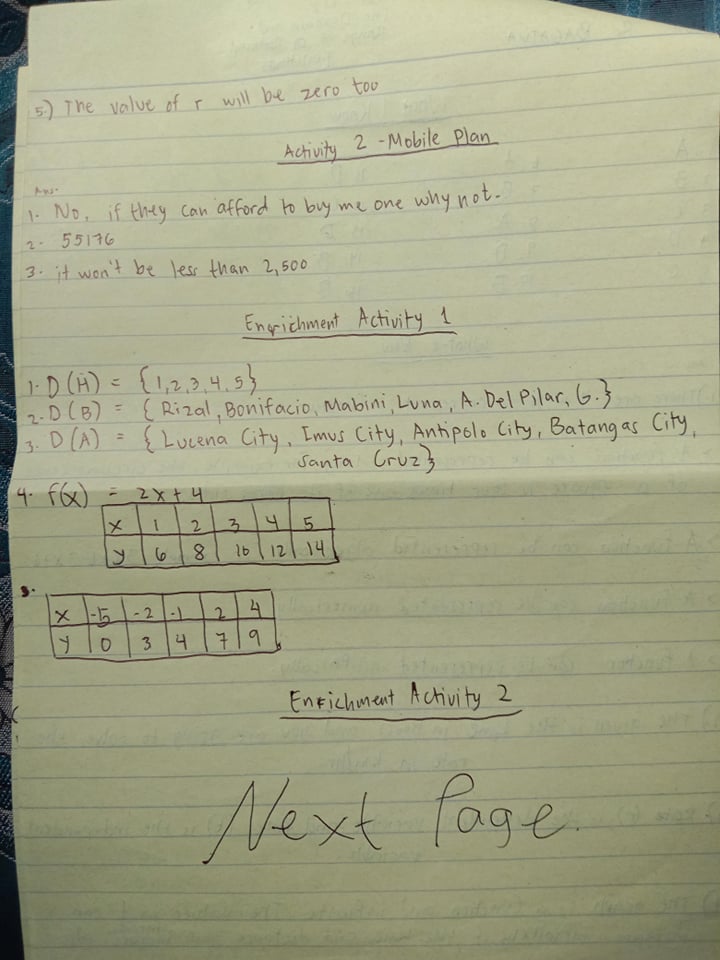 5.) The value of r will be zero too
Activity 2 - Mobile Plan
Ans.
1. No, if they can afford to buy me one why not.
2. 55176
3. it won't be less than 2,500
Enrichment Activity 1
1. D(H) = {1,2,3,4,5}
2. D(B) = {Rizal, Bonifacio, Mabini, Luna, A. Del Pilar, G.}
3. D(A) = {Lucena City, Imus City, Antipolo City, Batangas City,
Santa Cruz}
4. f(x) = 2x+4
x 1 2 3 4 5
y 6 8 10 12 14
x -5 -2 -1 2 4
y 0 3 4 7 9
Enrichment Activity 2
Next Page.